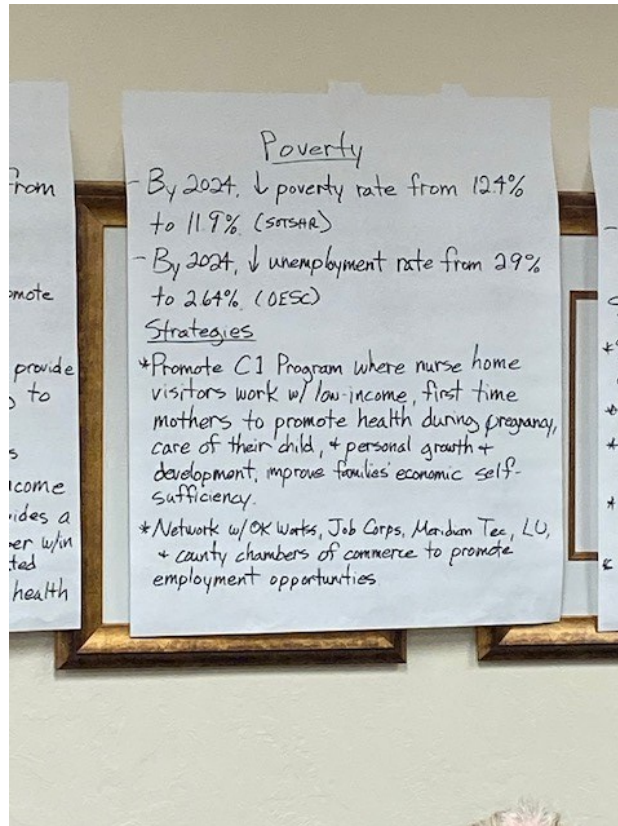 from
omote
provide
to
s
come
ides a
er w/in
ted
health
Poverty
- By 2024, ↓ poverty rate from 12.4%
to 11.9% (SOTSHR)
- By 2024, ↓ unemployment rate from 2.9%
to 2.64% (OESC)
Strategies
*Promote C1 Program where nurse home
visitors work w/ low-income, first time
mothers to promote health during pregnancy,
care of their child, + personal growth +
development, improve families' economic self-
sufficiency.
*Network w/ OK Works, Job Corps, Meridian Tec, LU,
+ county chambers of commerce to promote
employment opportunities